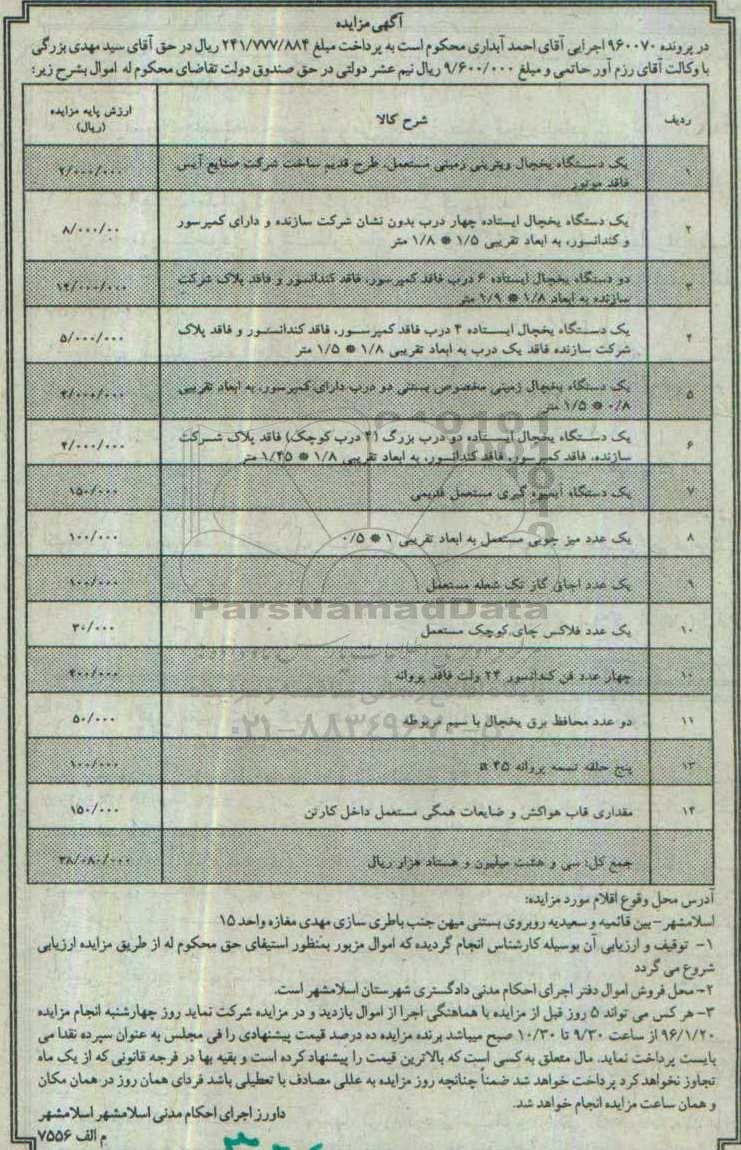 آگهی مزایده
در پرونده ۹۶۰۰۷۰ اجرایی آقای احمد آبداری محکوم است به پرداخت مبلغ ۲۴۱/۷۷۷/۸۸۴ ریال در حق آقای سید مهدی بزرگی
با وکالت آقای رزم آور حاتمی و مبلغ ۹/۶۰۰/۰۰۰ ریال نیم عشر دولتی در حق صندوق دولت تقاضای محکوم له اموال بشرح زیر:
ردیف شرح کالا ارزش پایه مزایده
(ریال)
۱ یک دستگاه یخچال ویترینی زمینی مستعمل، طرح قدیم ساخت شرکت صنایع آیس ۲/۰۰۰/۰۰۰
فاقد موتور
۲ یک دستگاه یخچال ایستاده چهار درب بدون نشان شرکت سازنده و دارای کمپرسور ۸/۰۰۰/۰۰
و کندانسور، به ابعاد تقریبی ۱/۵ * ۱/۸ متر
۳ دو دستگاه یخچال ایستاده ۶ درب فاقد کمپرسور، فاقد کندانسور و فاقد پلاک شرکت ۱۲/۰۰۰/۰۰۰
سازنده به ابعاد ۱/۸ * ۱/۹ متر
۴ یک دستگاه یخچال ایستاده ۴ درب فاقد کمپرسور، فاقد کندانسور و فاقد پلاک ۵/۰۰۰/۰۰۰
شرکت سازنده فاقد یک درب به ابعاد تقریبی ۱/۸ * ۱/۵ متر
۵ یک دستگاه یخچال زمینی مخصوص بستنی دو درب دارای کمپرسور، به ابعاد تقریبی
۰/۸ * ۱/۵ متر
۶ یک دستگاه یخچال ایستاده دو درب بزرگ (۴ درب کوچک) فاقد پلاک شرکت ۴/۰۰۰/۰۰۰
سازنده، فاقد کمپرسور، فاقد کندانسور، به ابعاد تقریبی ۱/۸ * ۱/۴۵ متر
۷ یک دستگاه آبمیوه گیری مستعمل قدیمی ۱۵۰/۰۰۰
۸ یک عدد میز چوبی مستعمل به ابعاد تقریبی ۱ * ۰/۵ ۱۰۰/۰۰۰
۹ یک عدد اجاق گاز تک شعله مستعمل ۱۰۰/۰۰۰
ParsNamadData
۱۰ یک عدد فلاکس چای کوچک مستعمل ۳۰/۰۰۰
۱۰ چهار عدد فن کندانسور ۲۴ ولت فاقد پروانه ۴۰۰/۰۰۰
۱۱ دو عدد محافظ برق یخچال با سیم مربوطه ۵۰/۰۰۰
۰۲۱-۸۸۳۴۹۶۷۰
۱۳ پنج حلقه تسمه پروانه a ۴۵ ۱۰۰/۰۰۰
۱۴ مقداری قاب هواکش و ضایعات همگی مستعمل داخل کارتن ۱۵۰/۰۰۰
جمع کل: سی و هشت میلیون و هشتاد هزار ریال ۳۸/۰۸۰/۰۰۰
آدرس محل وقوع اقلام مورد مزایده:
اسلامشهر – بین قائمیه و سعیدیه روبروی بستنی میهن جنب باطری سازی مهدی مغازه واحد ۱۵
۱- توقیف و ارزیابی آن بوسیله کارشناس انجام گردیده که اموال مزبور بمنظور استیفای حق محکوم له از طریق مزایده ارزیابی
شروع می گردد
۲- محل فروش اموال دفتر اجرای احکام مدنی دادگستری شهرستان اسلامشهر است.
۳- هر کس می تواند ۵ روز قبل از مزایده با هماهنگی اجرا از اموال بازدید و در مزایده شرکت نماید روز چهارشنبه انجام مزایده
۹۶/۱/۲۰ از ساعت ۹/۳۰ تا ۱۰/۳۰ صبح میباشد برنده مزایده ده درصد قیمت پیشنهادی را فی مجلس به عنوان سپرده نقدا می
بایست پرداخت نماید. مال متعلق به کسی است که بالاترین قیمت را پیشنهاد کرده است و بقیه بها در فرجه قانونی که از یک ماه
تجاوز نخواهد کرد پرداخت خواهد شد ضمناً چنانچه روز مزایده به عللی مصادف با تعطیلی باشد فردای همان روز در همان مکان
و همان ساعت مزایده انجام خواهد شد.
داورز اجرای احکام مدنی اسلامشهر اسلامشهر
م الف ۷۵۵۶